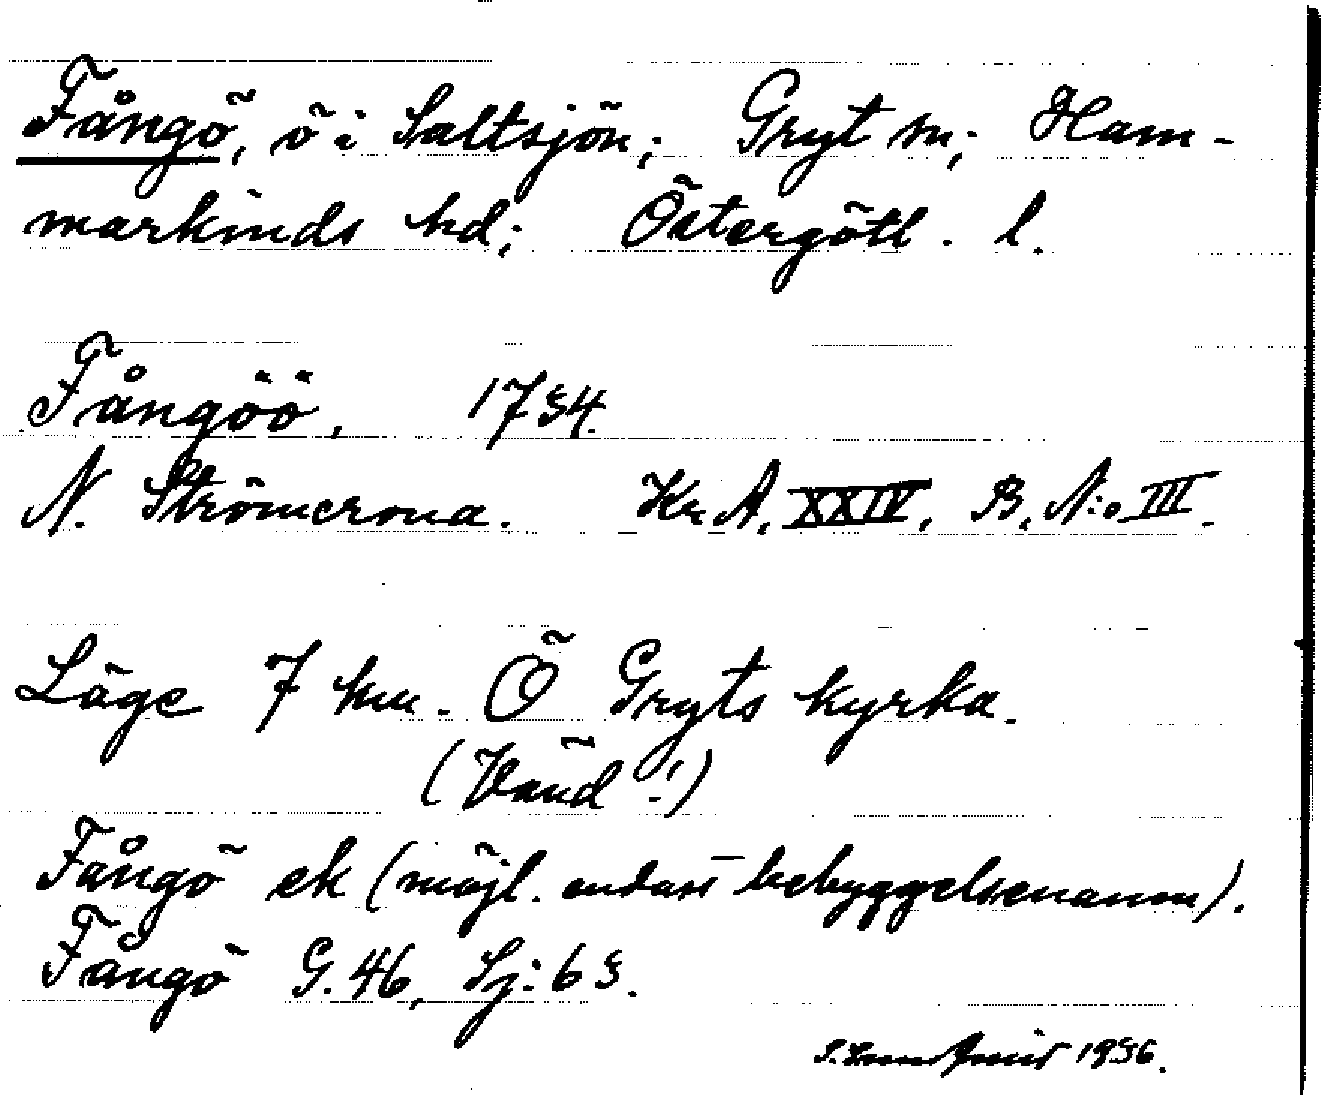 Fångö, ö i Saltsjön; Gryt sn; Ham-
markinds hd; Östergötl. l.
Fångöö, 1734.
N. Strömcrona. Kr. A, XXIV, B, N:o III.
Läge 7 km. Ö Gryts kyrka.
(Vänd!)
Fångö ek (möjl. endast bebyggelsenamn).
Fångö G. 46, Sj: 63.
1936.